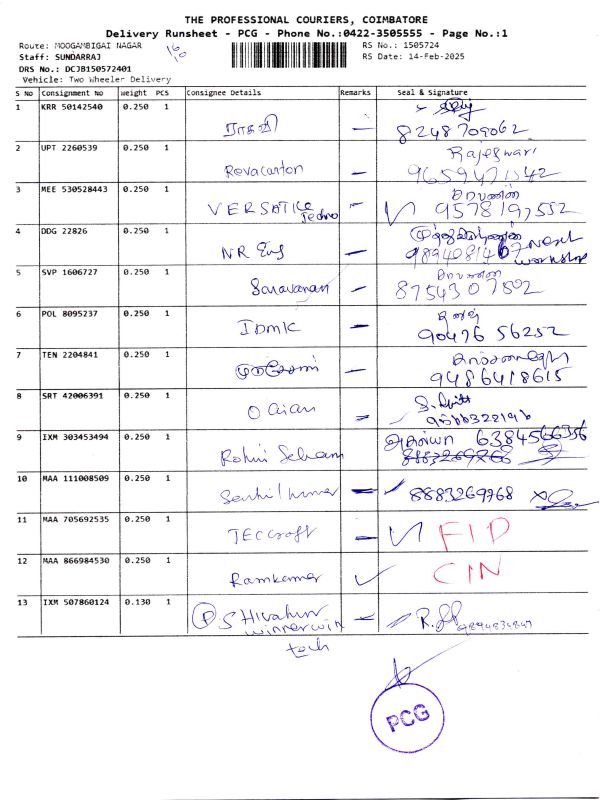 THE PROFESSIONAL COURIERS, COIMBATORE
Delivery Runsheet - PCG - Phone No.:0422-3505555 - Page No.:1
Route: MOOGAMBIGAI NAGAR RS No.: 1505724
Staff: SUNDARRAJ RS Date: 14-Feb-2025
DRS No.: DCJB150572401
Vehicle: Two Wheeler Delivery
S No Consignment No Weight PCS Consignee Details Remarks Seal & Signature
1 KRR 50142540 0.250 1 ராகவி 8248709062
2 UPT 2260539 0.250 1 Rajeswari
3 MEE 530528443 0.250 1 VERSATILE Techno
4 DDG 22826 0.250 1 NR Next workshop
5 SVP 1606727 0.250 1 Saravanan 8754307502
6 POL 8095237 0.250 1 IDMK 90476 56252
7 TEN 2204841 0.250 1 முருகேசன் 9486418615
8 SRT 42006391 0.250 1
9 IXM 303453494 0.250 1 Rohini 6384566356
8883269768
10 MAA 111008509 0.250 1 Senthil kumar 8883269768
11 MAA 705692535 0.250 1 TECcroft FID
12 MAA 866984530 0.250 1 Ramkumar CIN
13 IXM 507860124 0.130 1 P winnerwin
tech
PCG